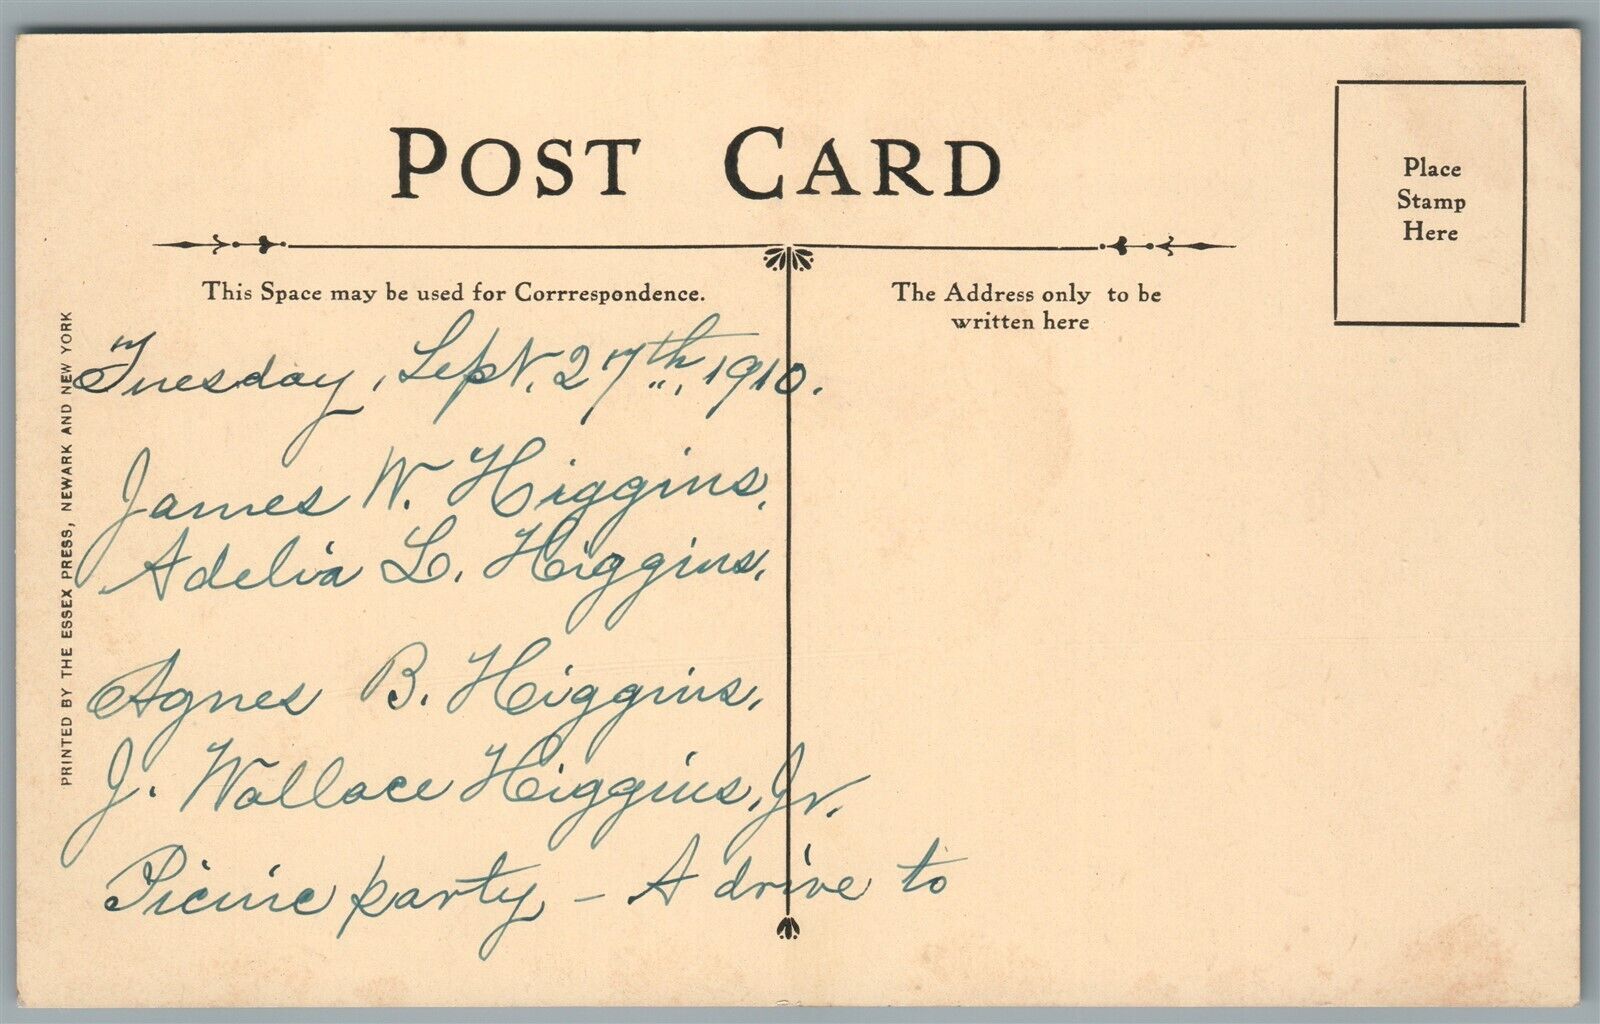 POST CARD
Place
Stamp
Here
This Space may be used for Corrrespondence.
The Address only to be
written here
PRINTED BY THE ESSEX PRESS, NEWARK AND NEW YORK
Tuesday, Sept. 27th, 1910.
James W. Higgins,
Adelia L. Higgins,
Agnes B. Higgins,
J. Wallace Higgins, Jr.
Picnic party, - A drive to